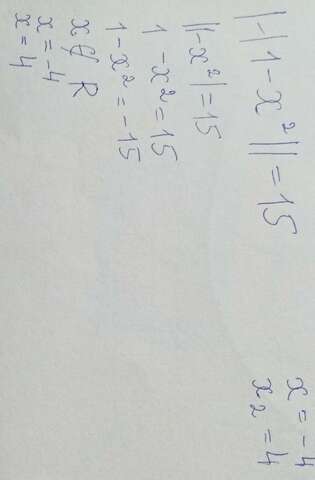 |-|1-x²|| = 15
|1-x²| = 15
1 -x² = 15
1-x² = -15
x ∉ R
x = -4
x = 4
x = -4
x₂ = 4